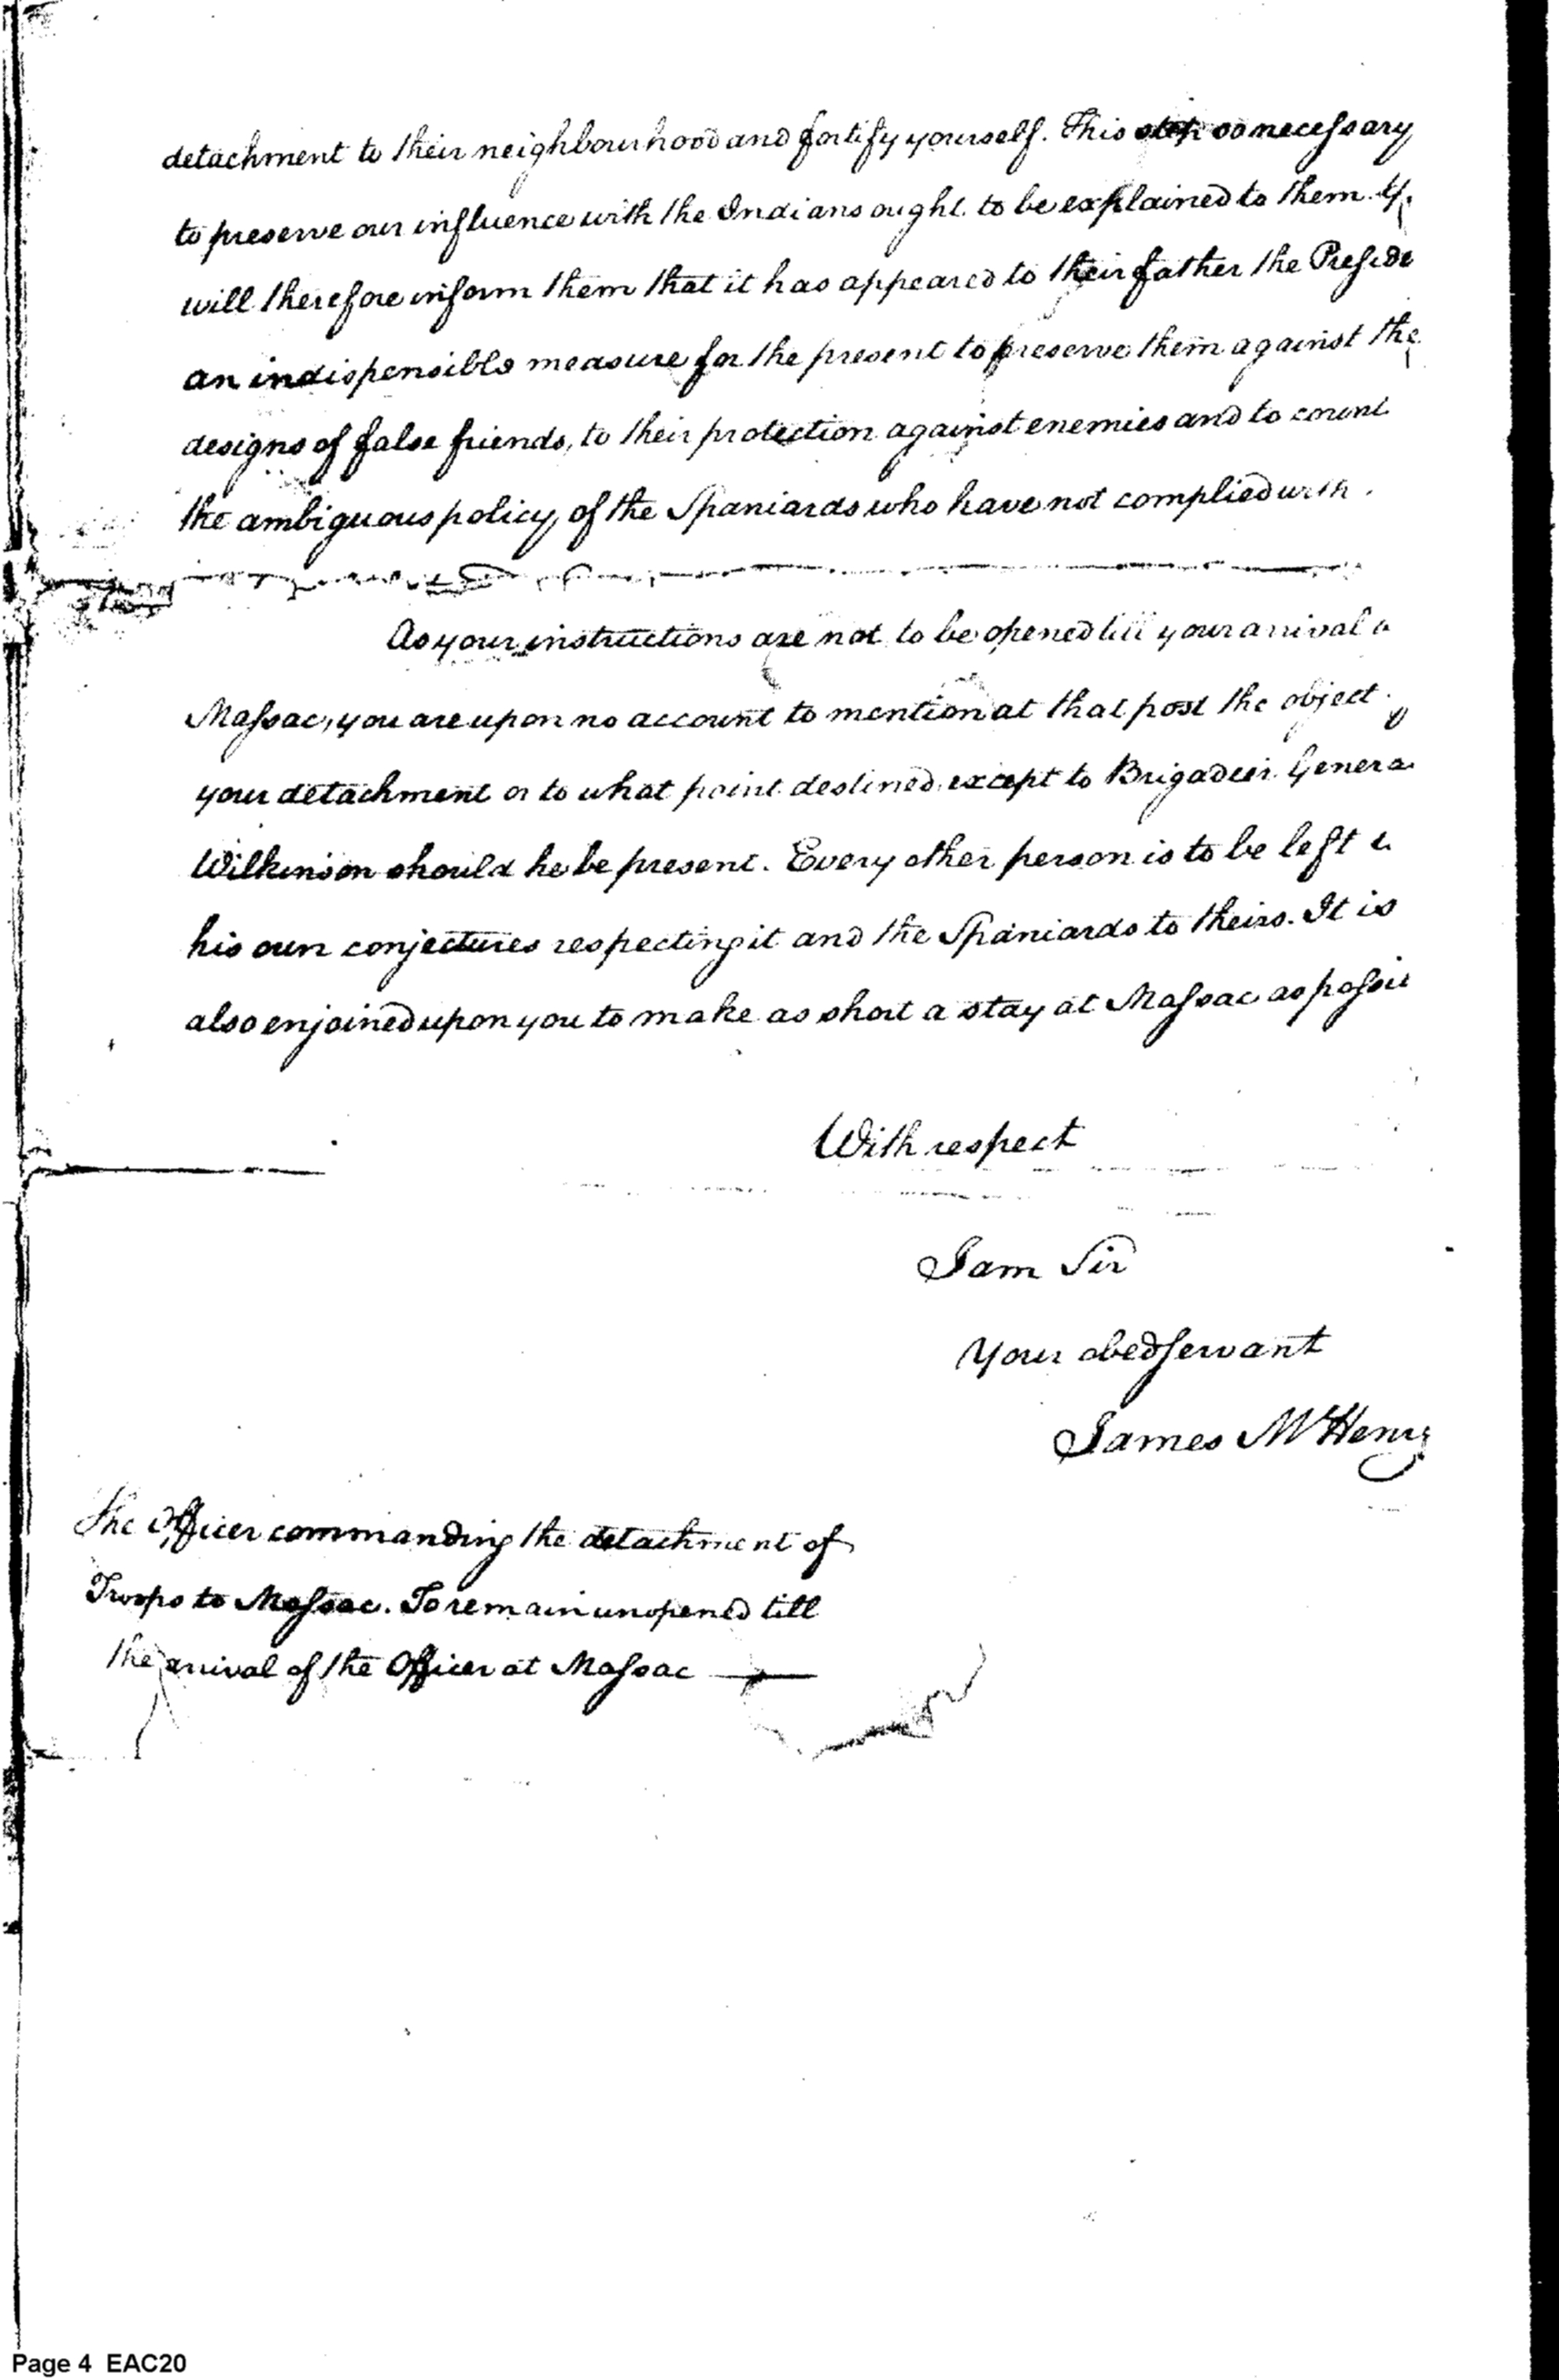 detachment to their neighbourhood and fortify yourself. This step so necessary
to preserve our influence with the Indians ought to be explained to them.
will therefore inform them that it has appeared to their father the Preside
an indispensible measure for the present to preserve them against the
designs of false friends, to their protection against enemies and to count
the ambiguous policy of the Spaniards who have not complied with
As your instructions are not to be opened till your arrival a
Massac, you are upon no account to mention at that post the object
your detachment or to what point destined, except to Brigadier Genera
Wilkinson should he be present. Every other person is to be left
his own conjectures respecting it and the Spaniards to theirs. It is
also enjoined upon you to make as short a stay at Massac as possi
With respect
I am Sir
Your obed servant
James McHenry
The Officer commanding the detachment of
Troops to Massac. To remain unopened till
the arrival of the Officer at Massac
Page 4 EAC20